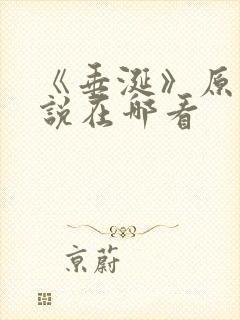 《垂涎》原
說在哪看
京蔚